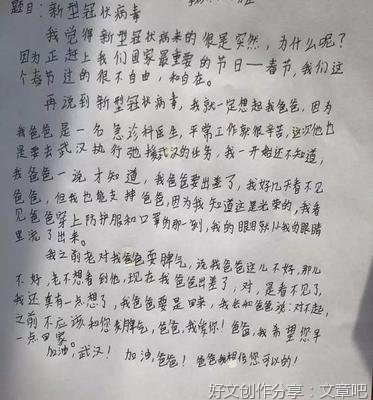 题目：新型冠状病毒
我觉得新型冠状病来的很是突然，为什么呢？
因为正赶上我们国家最重要的节日——春节，我们这
个春节过的很不自由，和自在。
再说到新型冠状病毒，我就一定想起我爸爸，因为
我爸爸是一名急诊科医生，平常工作就很辛苦，这次他也
是要去武汉执行驰援武汉的业务，我一开始还不知道，
我爸爸一说才知道，我爸爸要出差了，我好几天看不见
爸爸，但我也能支持爸爸，因为我知道这是光荣的，我看
见爸爸穿上防护服和口罩的那一刻，我的眼泪就从我的眼睛
里流了出来。
我之前老对我爸爸耍脾气，说我爸爸这儿不好，那儿
不好，老不想看到他，现在我爸爸出差了，对，是看不见了，
我还真有一点想了，我爸爸要是回来，我会和爸爸说：对不起，
之前不应该和您发脾气，爸爸，我爱你！爸爸，我希望您早
一点回家。
加油，武汉！加油，爸爸！爸爸我相信您可以的！
好文创作分享：文章吧